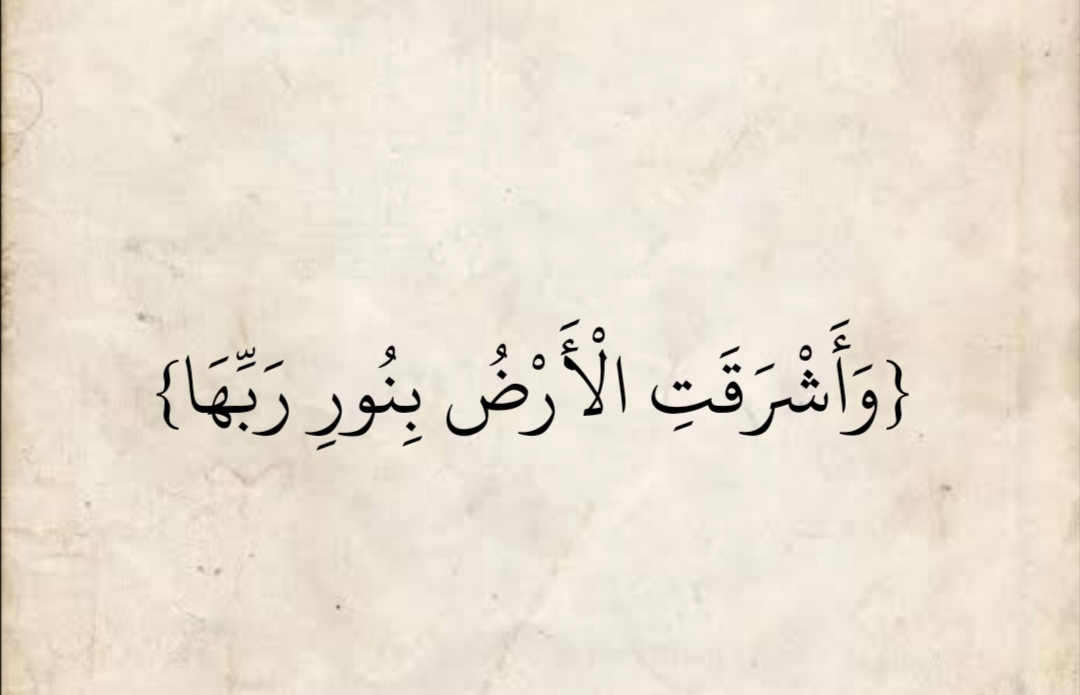 {وَأَشْرَقَتِ الْأَرْضُ بِنُورِ رَبِّهَا}